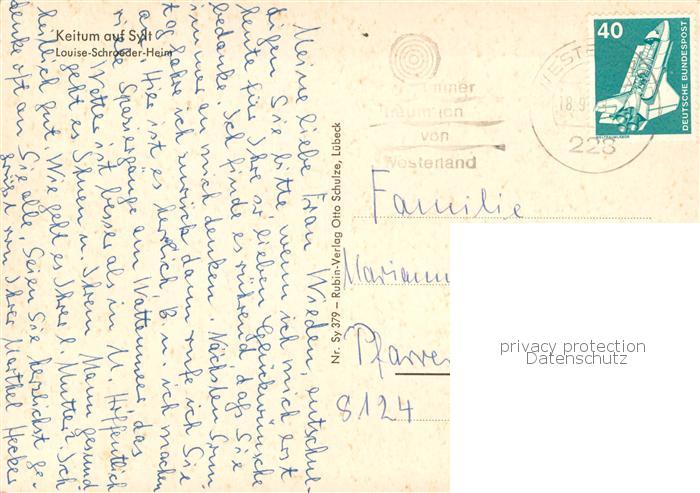 Keitum auf Sylt
Louise-Schroeder-Heim
Meine liebe Frau Wieden, entschul-
digen Sie bitte, wenn ich mich erst
heute für Ihre so lieben Genesungswünsche
bedanke. Ich finde es rührend daß Sie
immer an mich denken. Nächsten Sonn-
tag fahre ich zurück dann rufe ich Sie
an. Hier ist es herrlich B. u. ich machen
Spaziergänge am Wattenmeer das
Wetter ist besser als in M. Hoffentlich
geht es Ihnen u. Ihrem Mann gesund
herzlich gut. Wie geht es Ihrer l. Mutter. Ich
denke oft an Sie alle. Seien Sie herzlichst ge-
grüsst von Ihrer Marthel Hecker
Nr. Sy 379 – Rubin-Verlag Otto Schulze, Lübeck
von
Westerland
228
40
DEUTSCHE BUNDESPOST
Familie
Pfarre
8124
privacy protection
Datenschutz